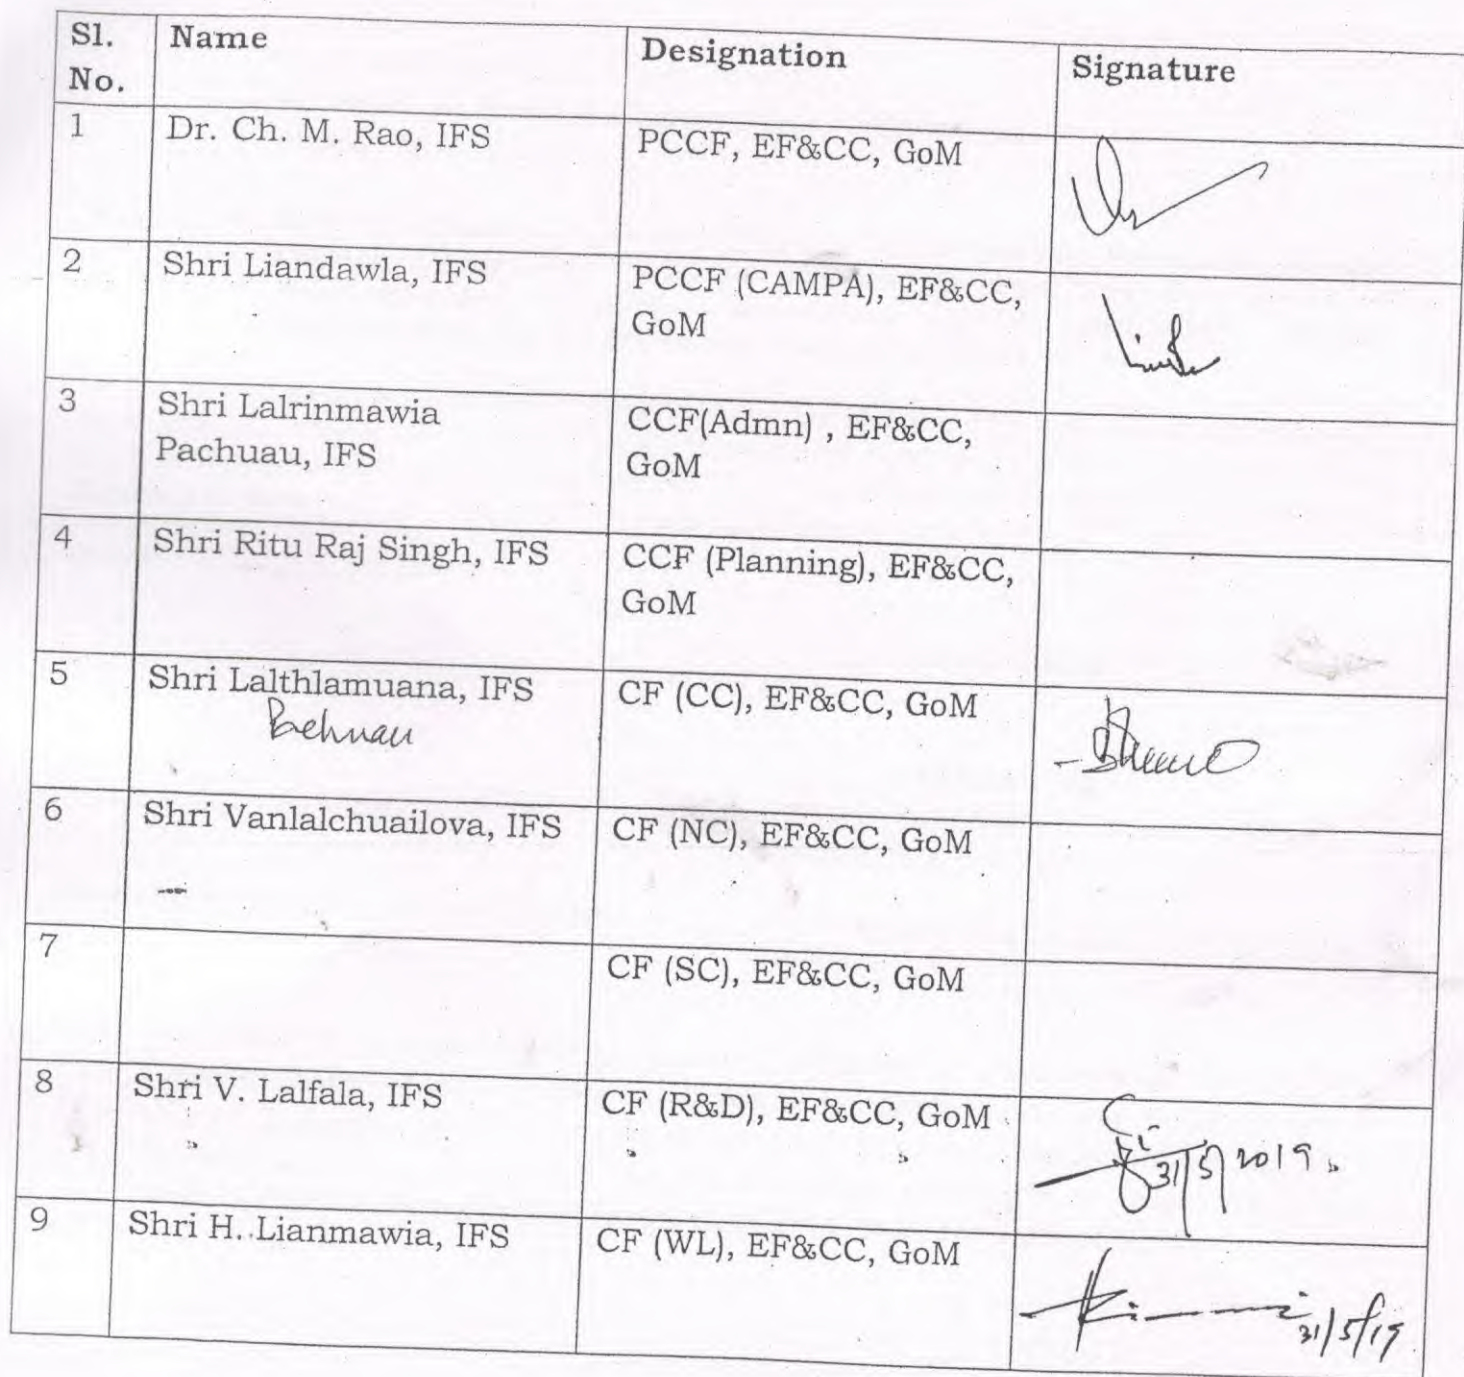 Sl. No. Name Designation Signature
1 Dr. Ch. M. Rao, IFS PCCF, EF&CC, GoM
2 Shri Liandawla, IFS PCCF (CAMPA), EF&CC,
GoM
3 Shri Lalrinmawia CCF(Admn) , EF&CC,
Pachuau, IFS GoM
4 Shri Ritu Raj Singh, IFS CCF (Planning), EF&CC,
GoM
5 Shri Lalthlamuana, IFS CF (CC), EF&CC, GoM
6 Shri Vanlalchuailova, IFS CF (NC), EF&CC, GoM
7 CF (SC), EF&CC, GoM
8 Shri V. Lalfala, IFS CF (R&D), EF&CC, GoM
31/5/2019
9 Shri H. Lianmawia, IFS CF (WL), EF&CC, GoM
31/5/19